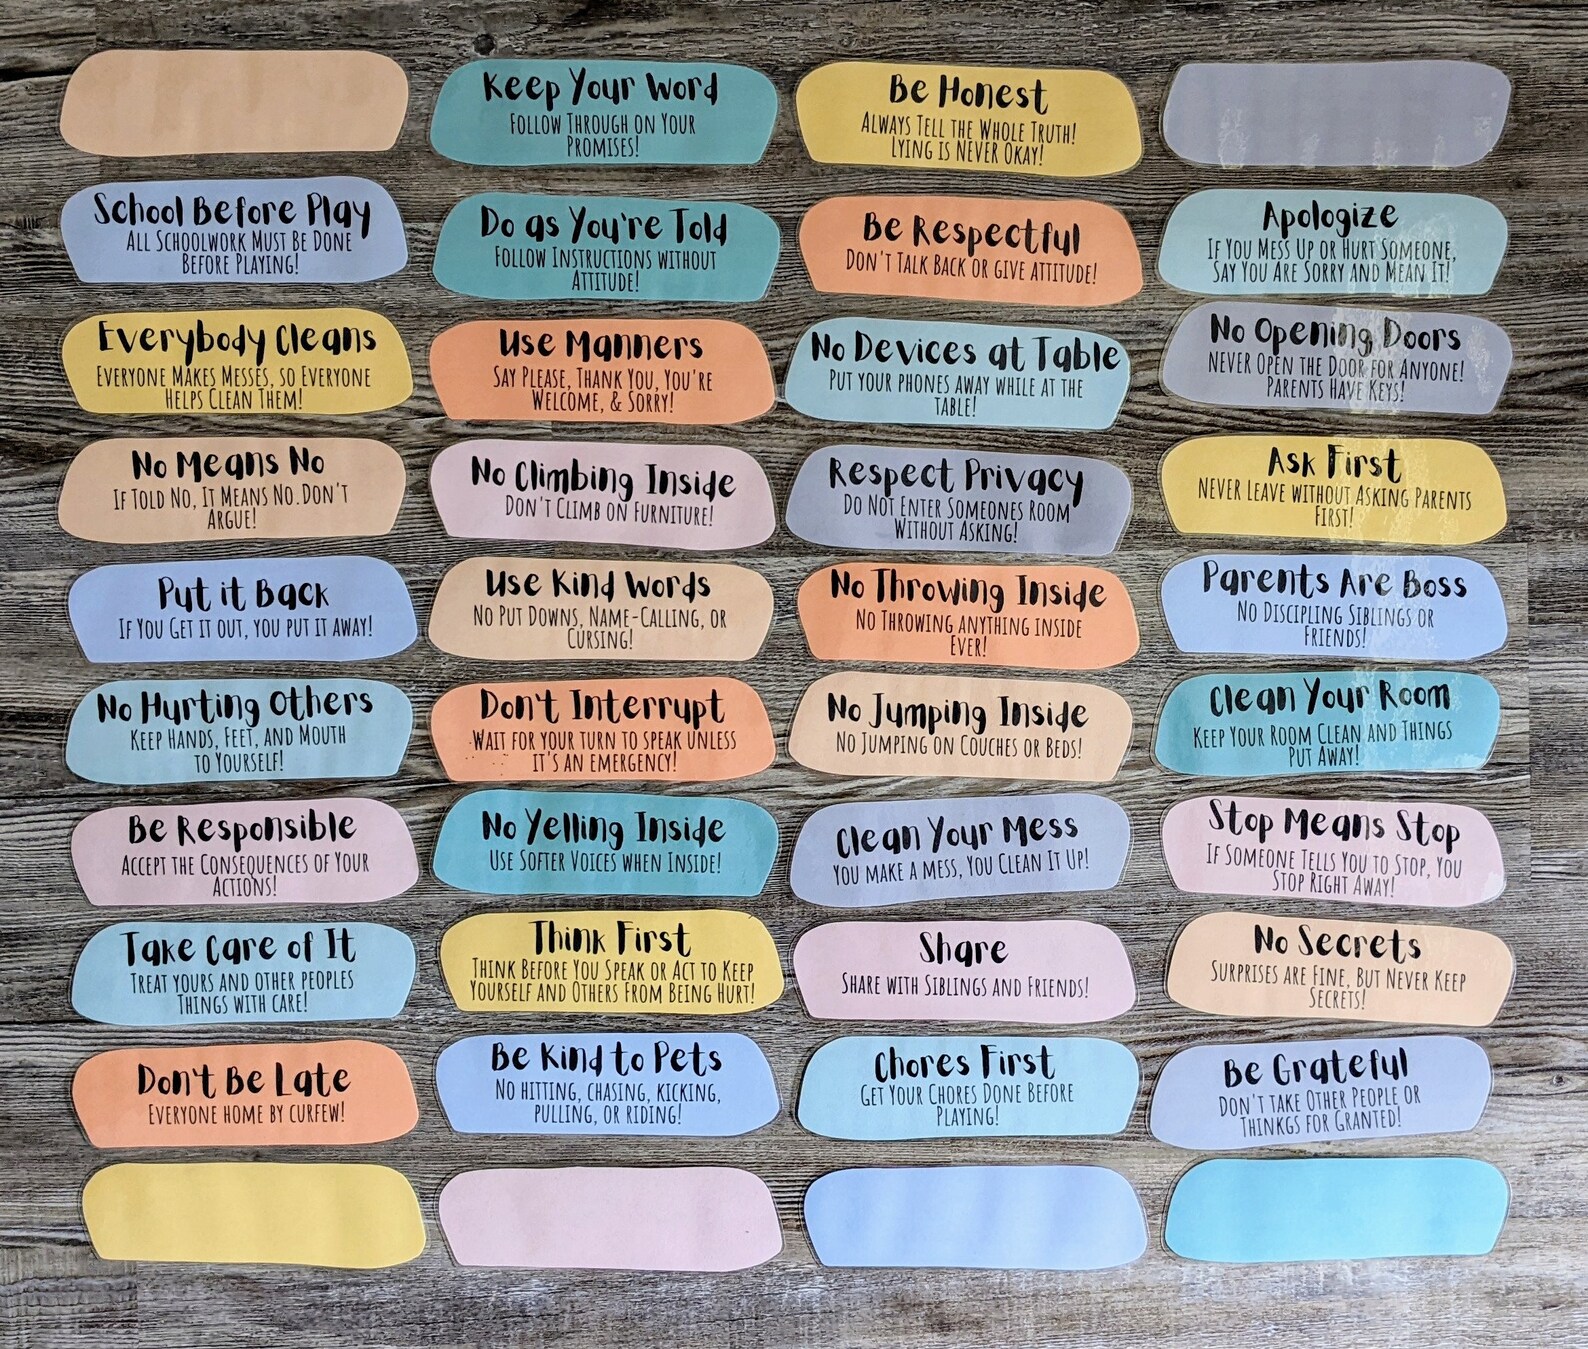 Keep Your Word
Follow Through on Your
Promises!
Be Honest
Always Tell the Whole Truth!
Lying is Never Okay!
School Before Play
All Schoolwork Must Be Done
Before Playing!
Do as You're Told
Follow Instructions without
Attitude!
Be Respectful
Don't Talk Back or give attitude!
Apologize
If You Mess Up or Hurt Someone,
Say You Are Sorry and Mean It!
Everybody Cleans
Everyone Makes Messes, so Everyone
Helps Clean Them!
Use Manners
Say Please, Thank You, You're
Welcome, & Sorry!
No Devices at Table
Put your phones away while at the
table!
No Opening Doors
Never Open the Door for Anyone!
Parents Have Keys!
No Means No
If Told No, It Means No. Don't
Argue!
No Climbing Inside
Don't Climb on Furniture!
Respect Privacy
Do Not Enter Someones Room
Without Asking!
Ask First
Never Leave without Asking Parents
First!
Put it Back
If You Get it out, you put it away!
Use Kind Words
No Put Downs, Name-Calling, or
Cursing!
No Throwing Inside
No Throwing anything inside
Ever!
Parents Are Boss
No Discipling Siblings or
Friends!
No Hurting Others
Keep Hands, Feet, and Mouth
to Yourself!
Don't Interrupt
Wait for your turn to speak unless
it's an emergency!
No Jumping Inside
No Jumping on Couches or Beds!
Clean Your Room
Keep Your Room Clean and Things
Put Away!
Be Responsible
Accept the Consequences of Your
Actions!
No Yelling Inside
Use Softer Voices when Inside!
Clean Your Mess
You make a mess, You Clean It Up!
Stop Means Stop
If Someone Tells You to Stop, You
Stop Right Away!
Take Care of It
Treat yours and other peoples
Things with care!
Think First
Think Before You Speak or Act to Keep
Yourself and Others From Being Hurt!
Share
Share with Siblings and Friends!
No Secrets
Surprises are Fine, But Never Keep
Secrets!
Don't Be Late
Everyone home by curfew!
Be Kind to Pets
No hitting, chasing, kicking,
pulling, or riding!
Chores First
Get Your Chores Done Before
Playing!
Be Grateful
Don't take Other People or
Thinkgs for Granted!